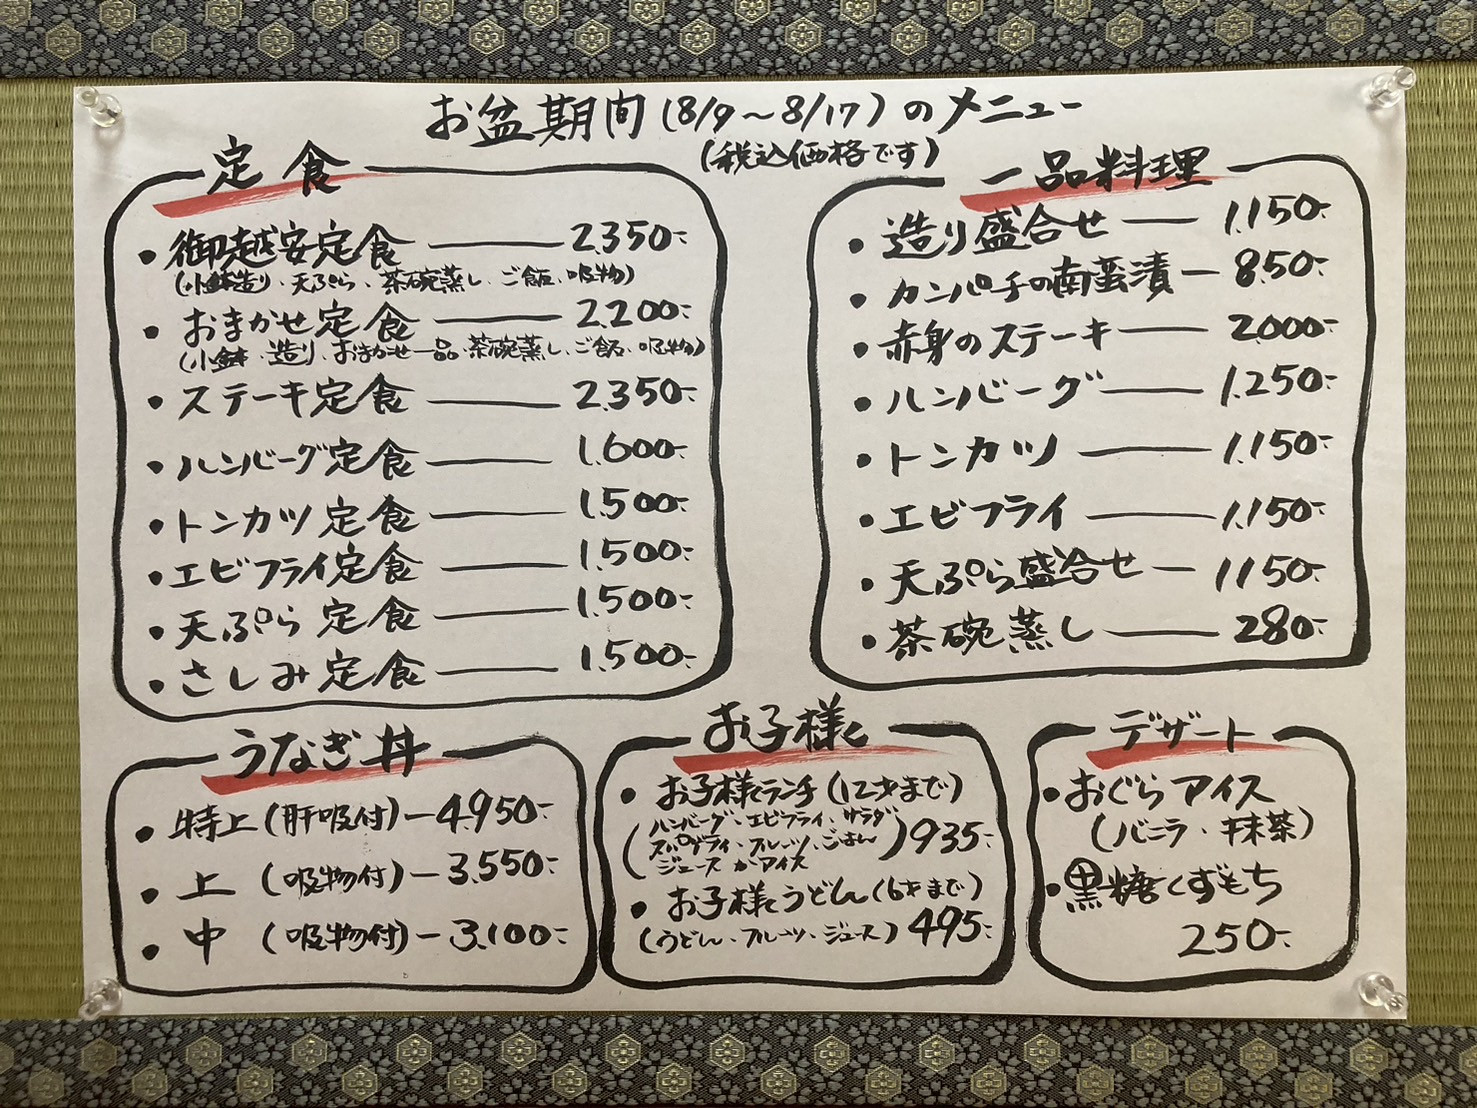 お盆期間(8/9〜8/17)のメニュー
(税込価格です)
定食
・御越安定食 ── 2,350-
(小鉢造り、天ぷら、茶碗蒸し、ご飯、吸物)
・おまかせ定食 ── 2,200-
(小鉢、造り、おまかせ一品、茶碗蒸し、ご飯、吸物)
・ステーキ定食 ── 2,350-
・ハンバーグ定食 ── 1,600-
・トンカツ定食 ── 1,500-
・エビフライ定食 ── 1,500-
・天ぷら定食 ── 1,500-
・さしみ定食 ── 1,500-
一品料理
・造り盛合せ ── 1,150-
・カンパチの南蛮漬 ─ 850-
・赤身のステーキ ── 2,000-
・ハンバーグ ── 1,250-
・トンカツ ── 1,150-
・エビフライ ── 1,150-
・天ぷら盛合せ ─ 1150-
・茶碗蒸し ── 280-
うなぎ丼
・特上(肝吸付)─ 4,950-
・上 (吸物付)─ 3,550-
・中 (吸物付)─ 3,100-
お子様
・お子様ランチ(12才まで)
(ハンバーグ、エビフライ、サラダ
スパゲティ、フルーツ、ごはん
ジュースかアイス) 935-
・お子様うどん(6才まで)
(うどん、フルーツ、ジュース) 495-
デザート
・おぐらアイス
(バニラ・抹茶)
・黒糖くずもち
250-